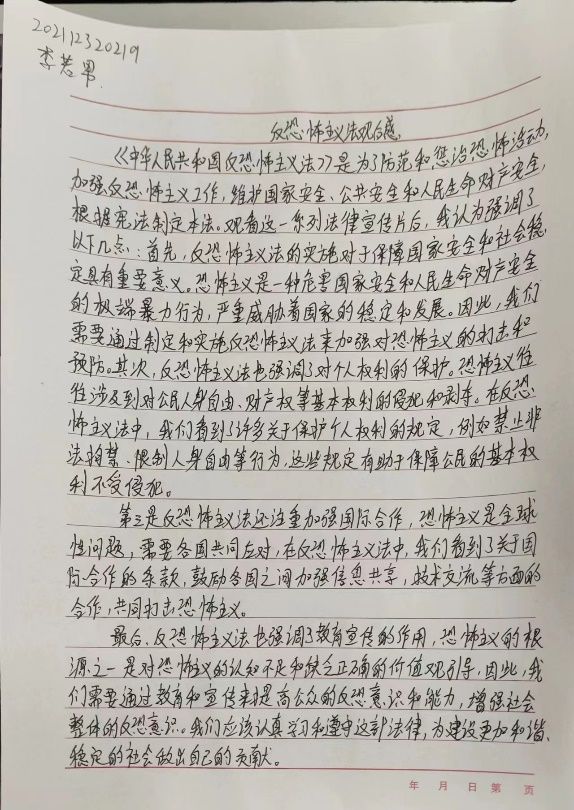 202112320219
李若男
反恐怖主义法观后感
《中华人民共和国反恐怖主义法》是为了防范和惩治恐怖活动,
加强反恐怖主义工作,维护国家安全、公共安全和人民生命财产安全,
根据宪法制定本法。观看这一系列法律宣传片后,我认为强调了
以下几点:首先,反恐怖主义法的实施对于保障国家安全和社会稳
定具有重要意义。恐怖主义是一种危害国家安全和人民生命财产安全
的极端暴力行为,严重威胁着国家的稳定和发展。因此,我们
需要通过制定和实施反恐怖主义法来加强对恐怖主义的打击和
预防。其次,反恐怖主义法也强调了对个人权利的保护。恐怖主义往
往涉及到对公民人身自由、财产权等基本权利的侵犯和剥夺。在反恐
怖主义法中,我们看到了许多关于保护个人权利的规定,例如禁止非
法拘禁、限制人身自由等行为,这些规定有助于保障公民的基本权
利不受侵犯。
第三是反恐怖主义法还注重加强国际合作,恐怖主义是全球
性问题,需要各国共同应对,在反恐怖主义法中,我们看到了关于国
际合作的条款,鼓励各国之间加强信息共享,技术交流等方面的
合作,共同打击恐怖主义。
最后、反恐怖主义法也强调了教育宣传的作用,恐怖主义的根
源之一是对恐怖主义的认知不足和缺乏正确的价值观引导,因此,我
们需要通过教育和宣传来提高公众的反恐意识和能力,增强社会
整体的反恐意识。我们应该认真学习和遵守这部法律,为建设更加和谐、
稳定的社会做出自己的贡献。
年 月 日 第 页